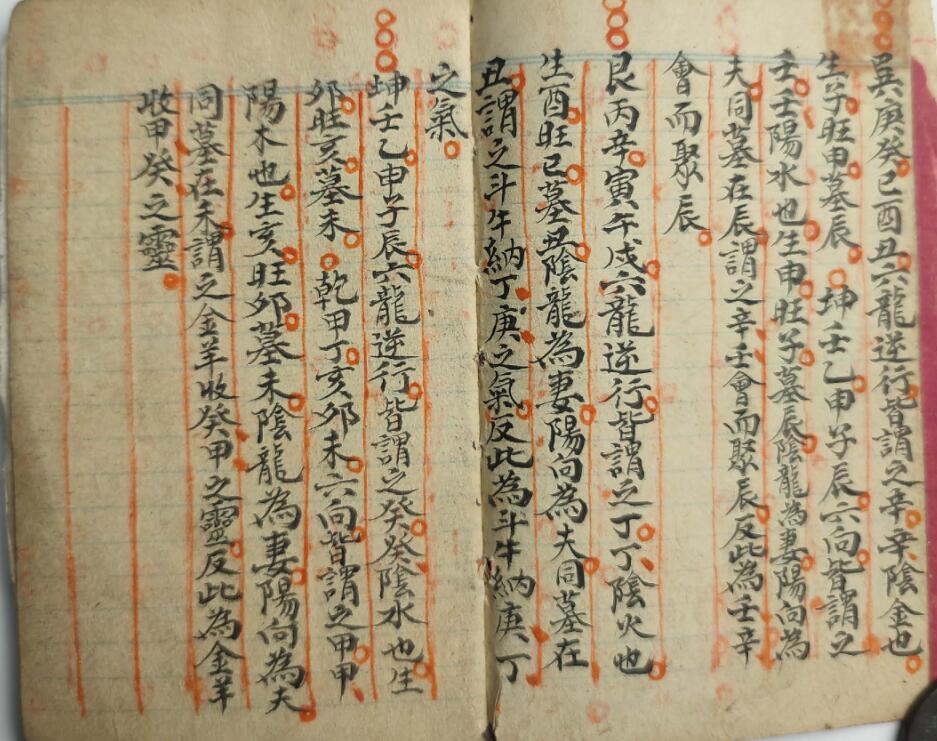 巽庚癸巳酉丑六龍逆行皆謂之辛辛陰金也
生子旺申墓辰坤壬乙申子辰六向皆謂之
壬壬陽水也生申旺子墓辰陰龍為妻陽向為
夫同墓在辰謂之辛壬會而聚辰反此為壬辛
會而聚辰
艮丙辛寅午戌六龍逆行皆謂之丁丁陰火也
生酉旺巳墓丑陰龍為妻陽向為夫同墓在
丑謂之斗牛納丁庚之氣反此為斗牛納庚丁
之氣
坤壬乙申子辰六龍逆行皆謂之癸癸陰水也生
夘旺亥墓未乾甲丁亥夘未六向皆謂之甲甲
陽木也生亥旺夘墓未陰龍為妻陽向為夫
同墓在未謂之金羊收癸甲之靈反此為金羊
收甲癸之靈